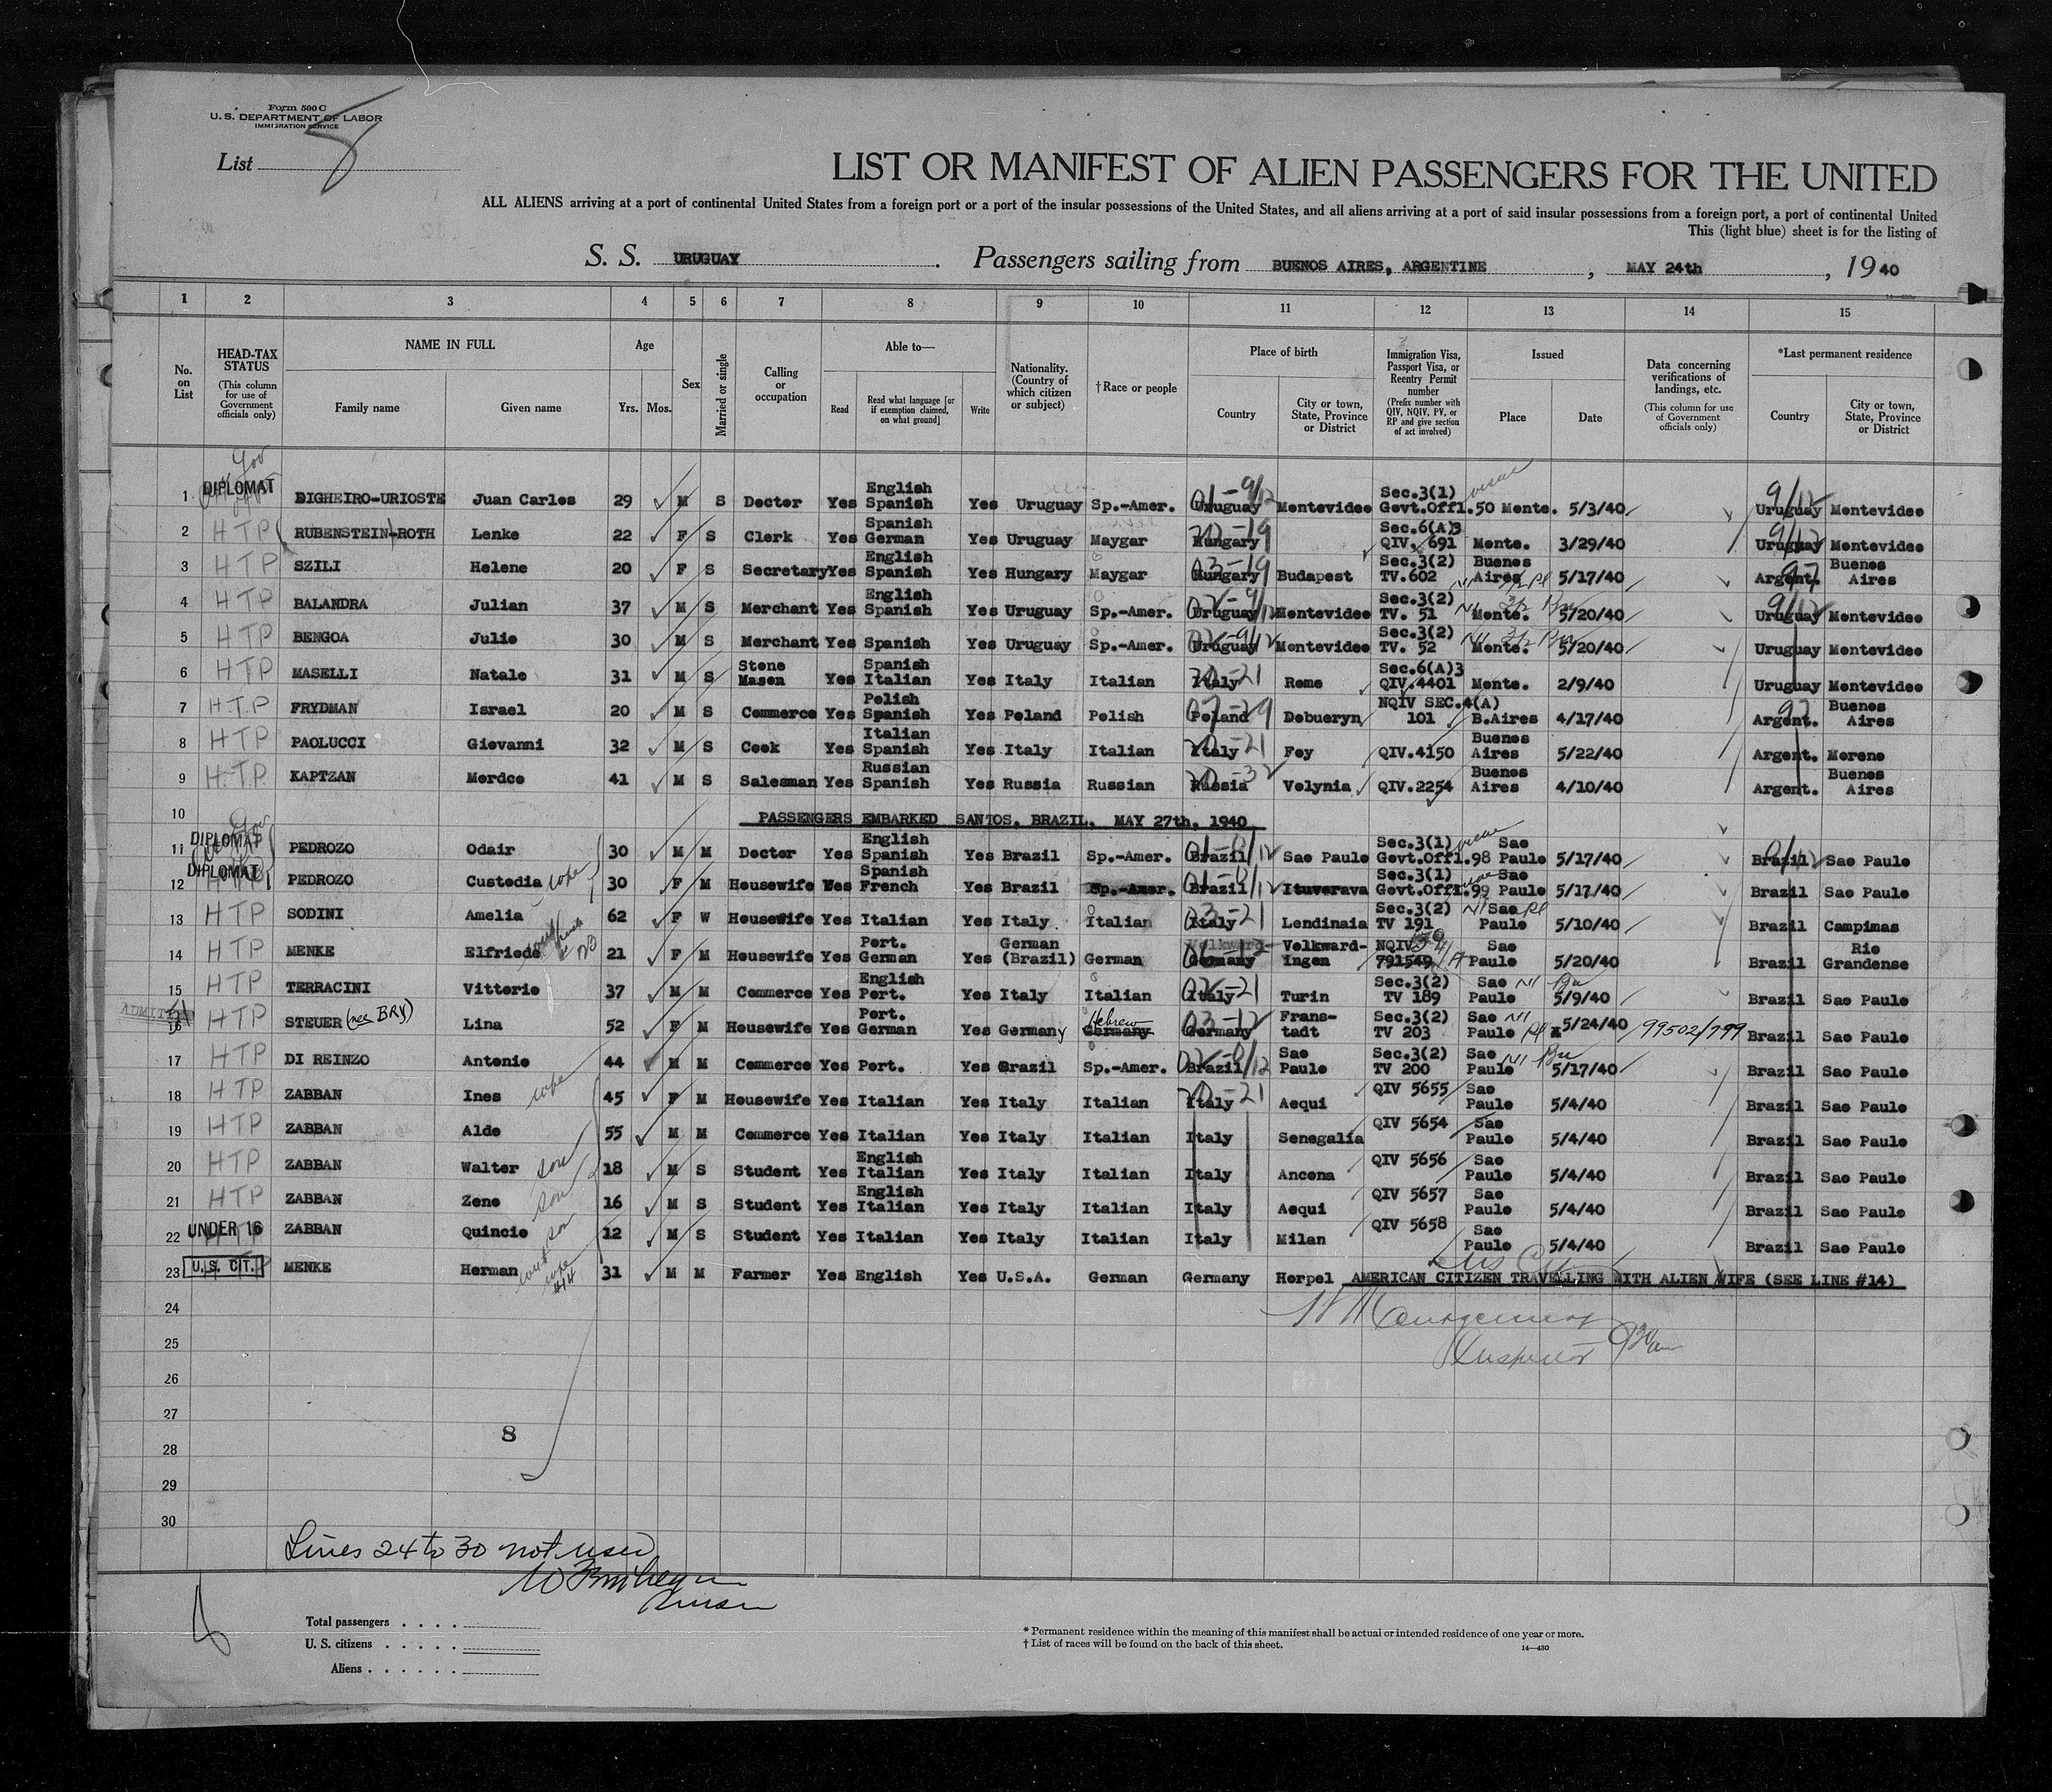 Form 500 C
U. S. DEPARTMENT OF LABOR
IMMIGRATION SERVICE
List 8
LIST OR MANIFEST OF ALIEN PASSENGERS FOR THE UNITED
ALL ALIENS arriving at a port of continental United States from a foreign port or a port of the insular possessions of the United States, and all aliens arriving at a port of said insular possessions from a foreign port, a port of continental United
This (light blue) sheet is for the listing of
S. S. URUGUAY. Passengers sailing from BUENOS AIRES, ARGENTINE, MAY 24th, 1940
1 2 3 4 5 6 7 8 9 10 11 12 13 14 15
No. on List
HEAD-TAX STATUS (This column for use of Government officials only)
NAME IN FULL Family name Given name
Age Yrs. Mos.
Sex
Married or single
Calling or occupation
Able to— Read Read what language [or if exemption claimed, on what ground] Write
Nationality. (Country of which citizen or subject)
†Race or people
Place of birth Country City or town, State, Province or District
Immigration Visa, Passport Visa, or Reentry Permit number (Prefix number with QIV, NQIV, PV, or RP and give section of act involved)
Issued Place Date
Data concerning verifications of landings, etc. (This column for use of Government officials only)
*Last permanent residence Country City or town, State, Province or District
1 DIPLOMAT DIGHEIRO-URIOSTE Juan Carlos 29 M S Doctor Yes English Spanish Yes Uruguay Sp.-Amer. Uruguay Montevideo Sec.3(1) Govt.Offl.50 Monte. 5/3/40 Uruguay Montevideo
2 HTP RUBENSTEIN-ROTH Lenke 22 F S Clerk Yes Spanish German Yes Uruguay Maygar Hungary Sec.6(A)3 QIV, 691 Monte. 3/29/40 Uruguay Montevideo
3 HTP SZILI Helene 20 F S Secretary Yes English Spanish Yes Hungary Maygar Hungary Budapest Sec.3(2) TV.602 Buenos Aires 5/17/40 Argent. Buenos Aires
4 HTP BALANDRA Julian 37 M S Merchant Yes English Spanish Yes Uruguay Sp.-Amer. Uruguay Montevideo Sec.3(2) TV. 51 Monte. 5/20/40 Uruguay Montevideo
5 HTP BENGOA Julio 30 M S Merchant Yes Spanish Yes Uruguay Sp.-Amer. Uruguay Montevideo Sec.3(2) TV. 52 Monte. 5/20/40 Uruguay Montevideo
6 HTP MASELLI Natale 31 M S Stone Mason Yes Spanish Italian Yes Italy Italian Italy Rome Sec.6(A)3 QIV.4401 Monte. 2/9/40 Uruguay Montevideo
7 H.T.P FRYDMAN Israel 20 M S Commerce Yes Polish Spanish Yes Poland Polish Poland Dobueryn NQIV SEC.4(A) 101 B.Aires 4/17/40 Argent. Buenos Aires
8 HTP PAOLUCCI Giovanni 32 M S Cook Yes Italian Spanish Yes Italy Italian Italy Foy QIV.4150 Buenos Aires 5/22/40 Argent. Moreno
9 H.T.P. KAPTZAN Mordco 41 M S Salesman Yes Russian Spanish Yes Russia Russian Russia Volynia QIV.2254 Buenos Aires 4/10/40 Argent. Buenos Aires
10 PASSENGERS EMBARKED SANTOS, BRAZIL, MAY 27th, 1940
11 DIPLOMAT PEDROZO Odair 30 M M Doctor Yes English Spanish Yes Brazil Sp.-Amer. Brazil Sao Paulo Sec.3(1) Govt.Offl.98 Sao Paulo 5/17/40 Brazil Sao Paulo
12 DIPLOMAT PEDROZO Custodia wife 30 F M Housewife Yes Spanish French Yes Brazil Sp.-Amer. Brazil Ituverava Sec.3(1) Govt.Offl.99 Sao Paulo 5/17/40 Brazil Sao Paulo
13 HTP SODINI Amelia 62 F W Housewife Yes Italian Yes Italy Italian Italy Lendinaia Sec.3(2) TV 191 Sao Paulo 5/10/40 Brazil Campimas
14 HTP MENKE Elfriede 21 F M Housewife Yes Port. German Yes German (Brazil) German Germany Volkward-Ingen NQIV 791549 Sao Paulo 5/20/40 Brazil Rio Grandense
15 HTP TERRACINI Vittorio 37 M M Commerce Yes English Port. Yes Italy Italian Italy Turin Sec.3(2) TV 189 Sao Paulo 5/9/40 Brazil Sao Paulo
ADMITTED 16 HTP STEUER (nee BRY) Lina 52 F M Housewife Yes Port. German Yes Germany Germany Hebrew Germany Frans-tadt Sec.3(2) TV 203 Sao Paulo 5/24/40 99502/799 Brazil Sao Paulo
17 HTP DI REINZO Antonio 44 M M Commerce Yes Port. Yes Brazil Sp.-Amer. Brazil Sao Paulo Sec.3(2) TV 200 Sao Paulo 5/17/40 Brazil Sao Paulo
18 HTP ZABBAN Ines wife 45 F M Housewife Yes Italian Yes Italy Italian Italy Acqui QIV 5655 Sao Paulo 5/4/40 Brazil Sao Paulo
19 HTP ZABBAN Aldo 55 M M Commerce Yes Italian Yes Italy Italian Italy Senegalia QIV 5654 Sao Paulo 5/4/40 Brazil Sao Paulo
20 HTP ZABBAN Walter son 18 M S Student Yes English Italian Yes Italy Italian Italy Ancona QIV 5656 Sao Paulo 5/4/40 Brazil Sao Paulo
21 HTP ZABBAN Zeno son 16 M S Student Yes English Italian Yes Italy Italian Italy Acqui QIV 5657 Sao Paulo 5/4/40 Brazil Sao Paulo
22 UNDER 16 ZABBAN Quincio son 12 M S Student Yes Italian Yes Italy Italian Italy Milan QIV 5658 Sao Paulo 5/4/40 Brazil Sao Paulo
23 U.S. CIT. MENKE Herman 31 M M Farmer Yes English Yes U.S.A. German Germany Horpel AMERICAN CITIZEN TRAVELLING WITH ALIEN WIFE (SEE LINE #14)
24
25 Inspector
26
27
28 8
29
30
Lines 24 to 30 not used
Total passengers . . . .
U. S. citizens . . . . .
Aliens . . . . . .
* Permanent residence within the meaning of this manifest shall be actual or intended residence of one year or more.
† List of races will be found on the back of this sheet.
14—430